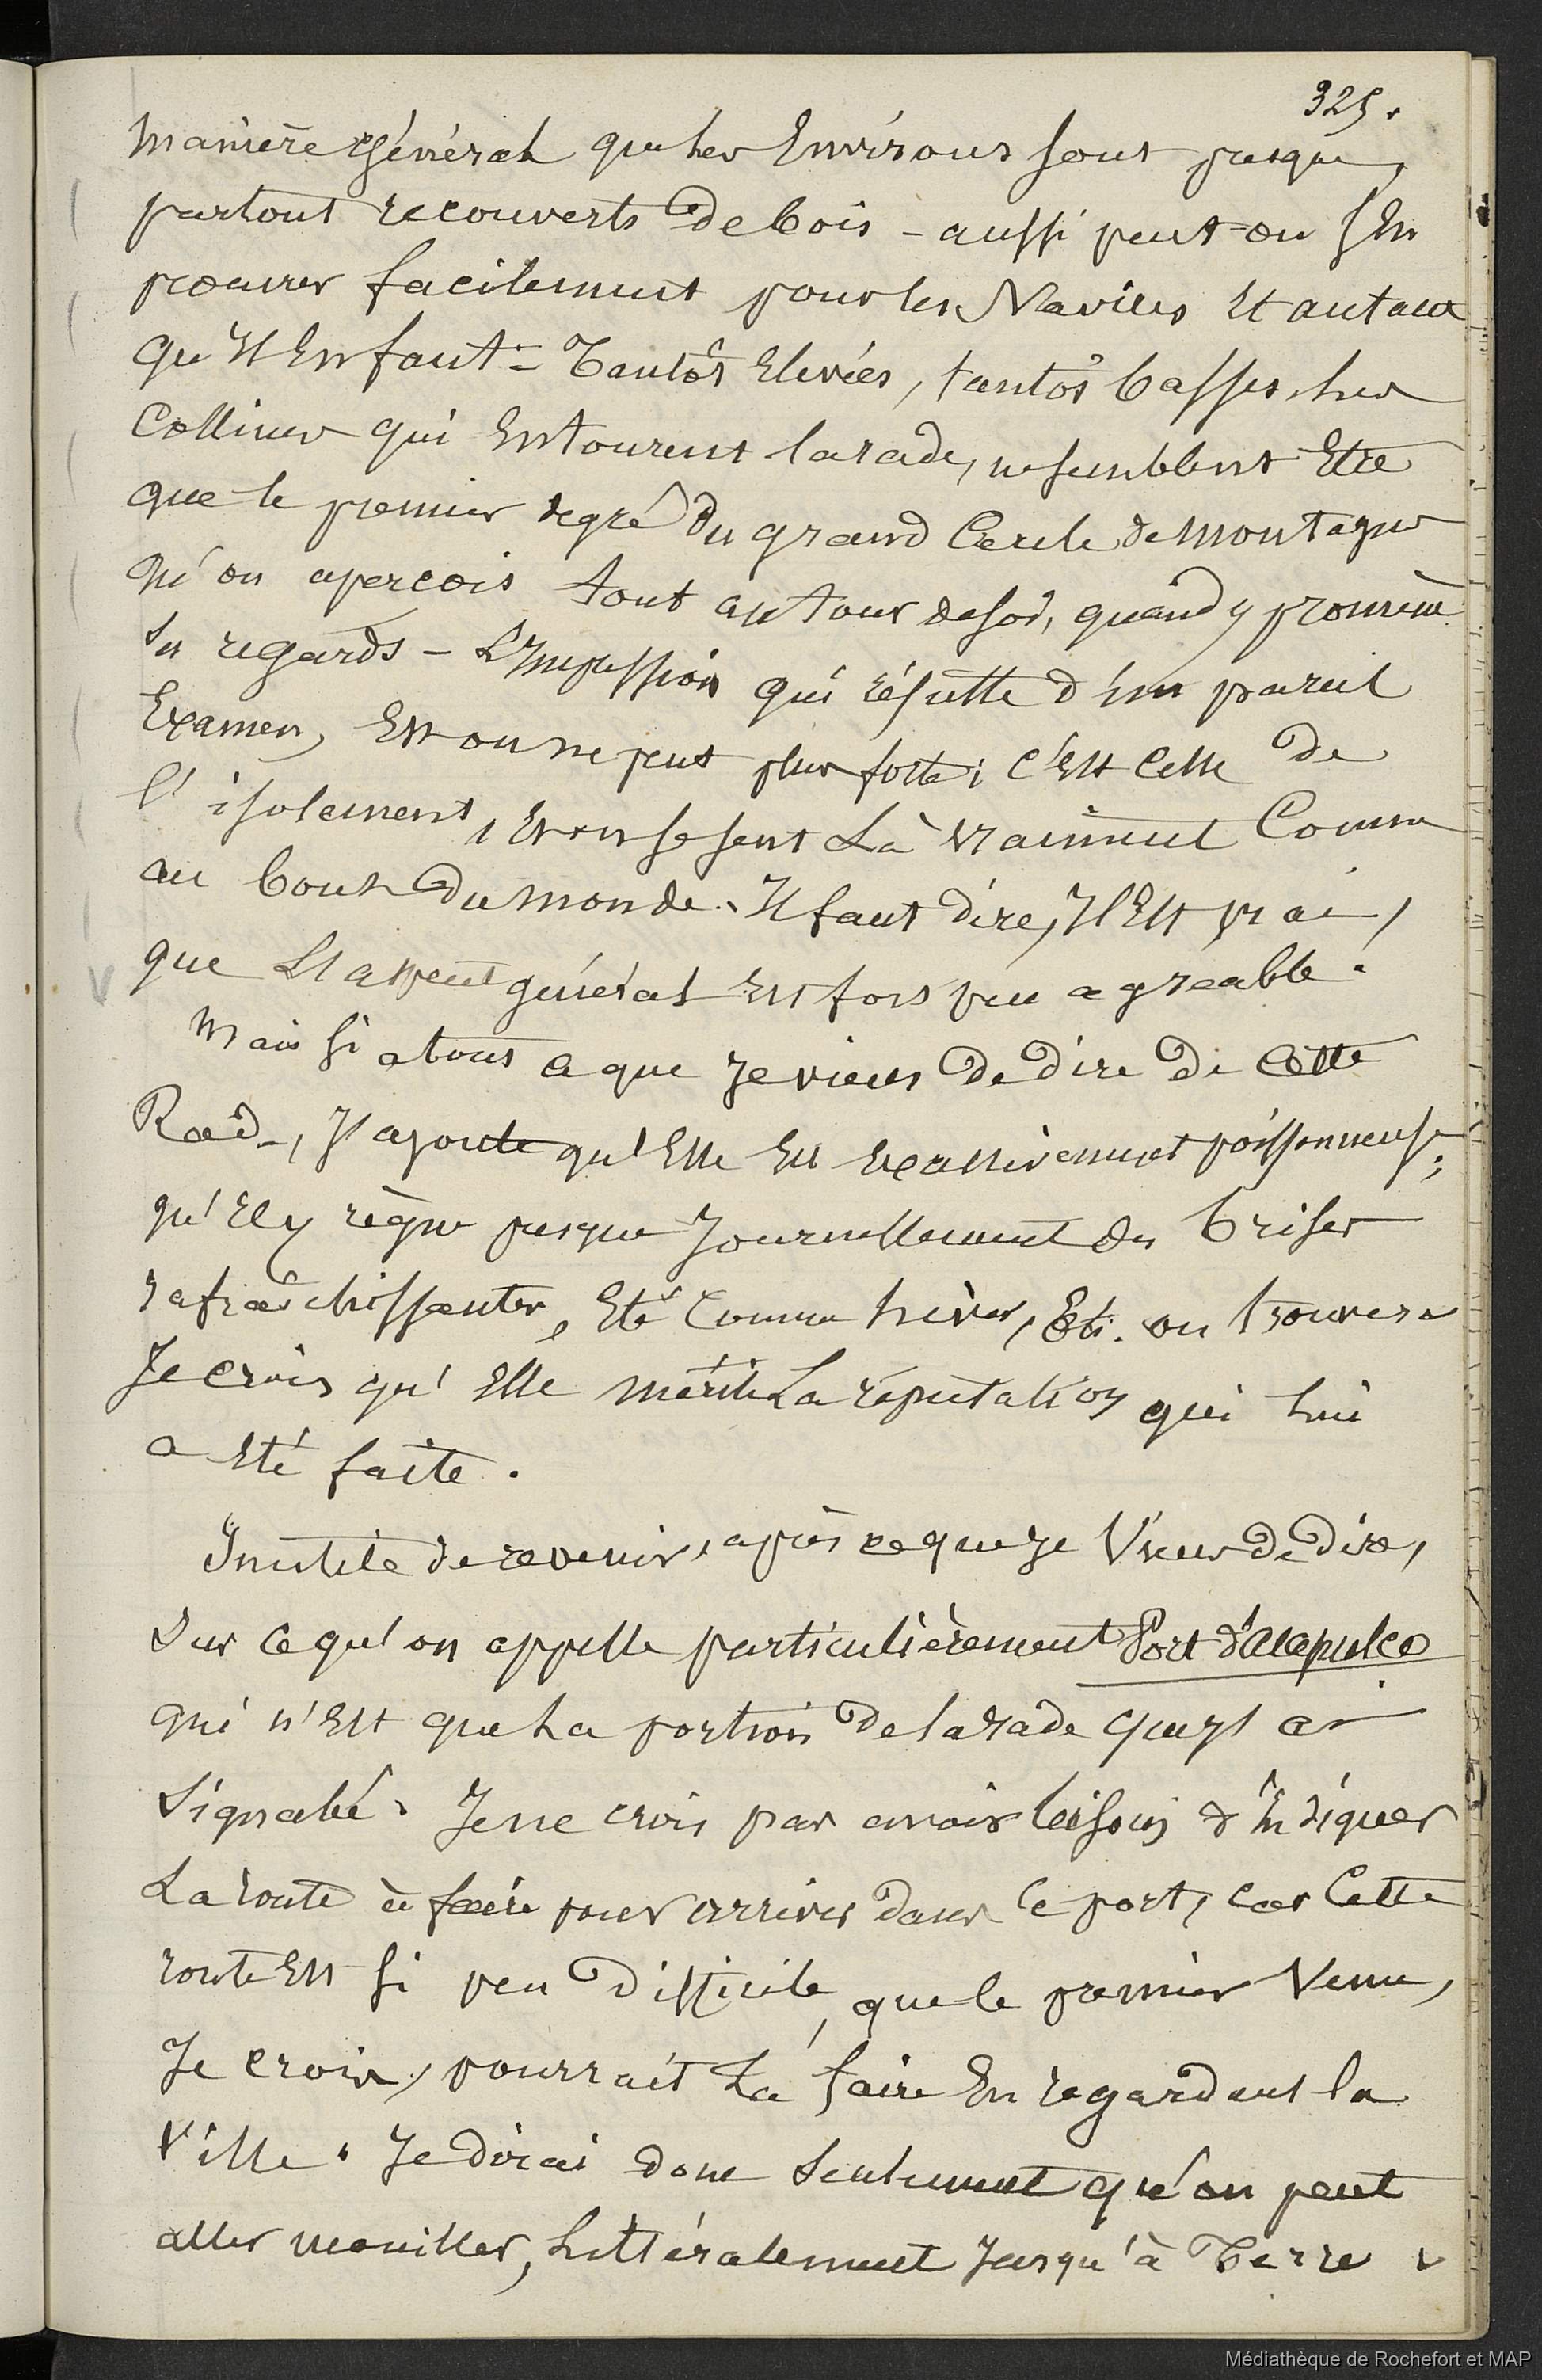 325.
manière général que les Environs sont presque
partout recouverts de bois - aussi peut-on s'En
procurer facilement pour les Navires Et autant
qu'Il En faut - Tantôt Elevées, tantôt basses, les
Collines qui Entourent la rade, ne semblent Etre
que le premier degré du grand Cercle de montagnes
qu'on apercois tout autour de soi, quand y promène
ses regards - L'Impression qui résulte d'un pareil
Examen, Est on ne peut plus forte; C'Est Celle de
l'isolement, Et on se sent Là vraiment Comme
au bout du monde. Il faut dire, Il Est vrai,
que L'aspect général Est fort peu agréable.
Mais si a tout ce que Je viens de dire de Cette
Rade, J'ajoute qu'Elle Est Excessivement poissonneuse;
qu'Il y règne presque Journellement des brises
rafraichissantes, Eté Comme hiver, Etc. on trouvera
Je crois qu'Elle mérite La réputation qui lui
a Eté faite.
Inutile de revenir, après ce que Je Viens de dire,
Sur Ce qu'on appelle particulièrement Port d'Acapulco
qui n'Est que La portion de la rade que J'ai
Signalé. Je ne crois pas avoir besoin d'Indiquer
La route à faire pour arriver dans Ce port, car Cette
route Est si peu difficile, que le premier Venu,
Je crois, pourrait La faire En regardant la
Ville. Je dirai donc Seulement qu'on peut
aller mouiller, Littéralement Jusqu'à Terre
Médiathèque de Rochefort et MAP